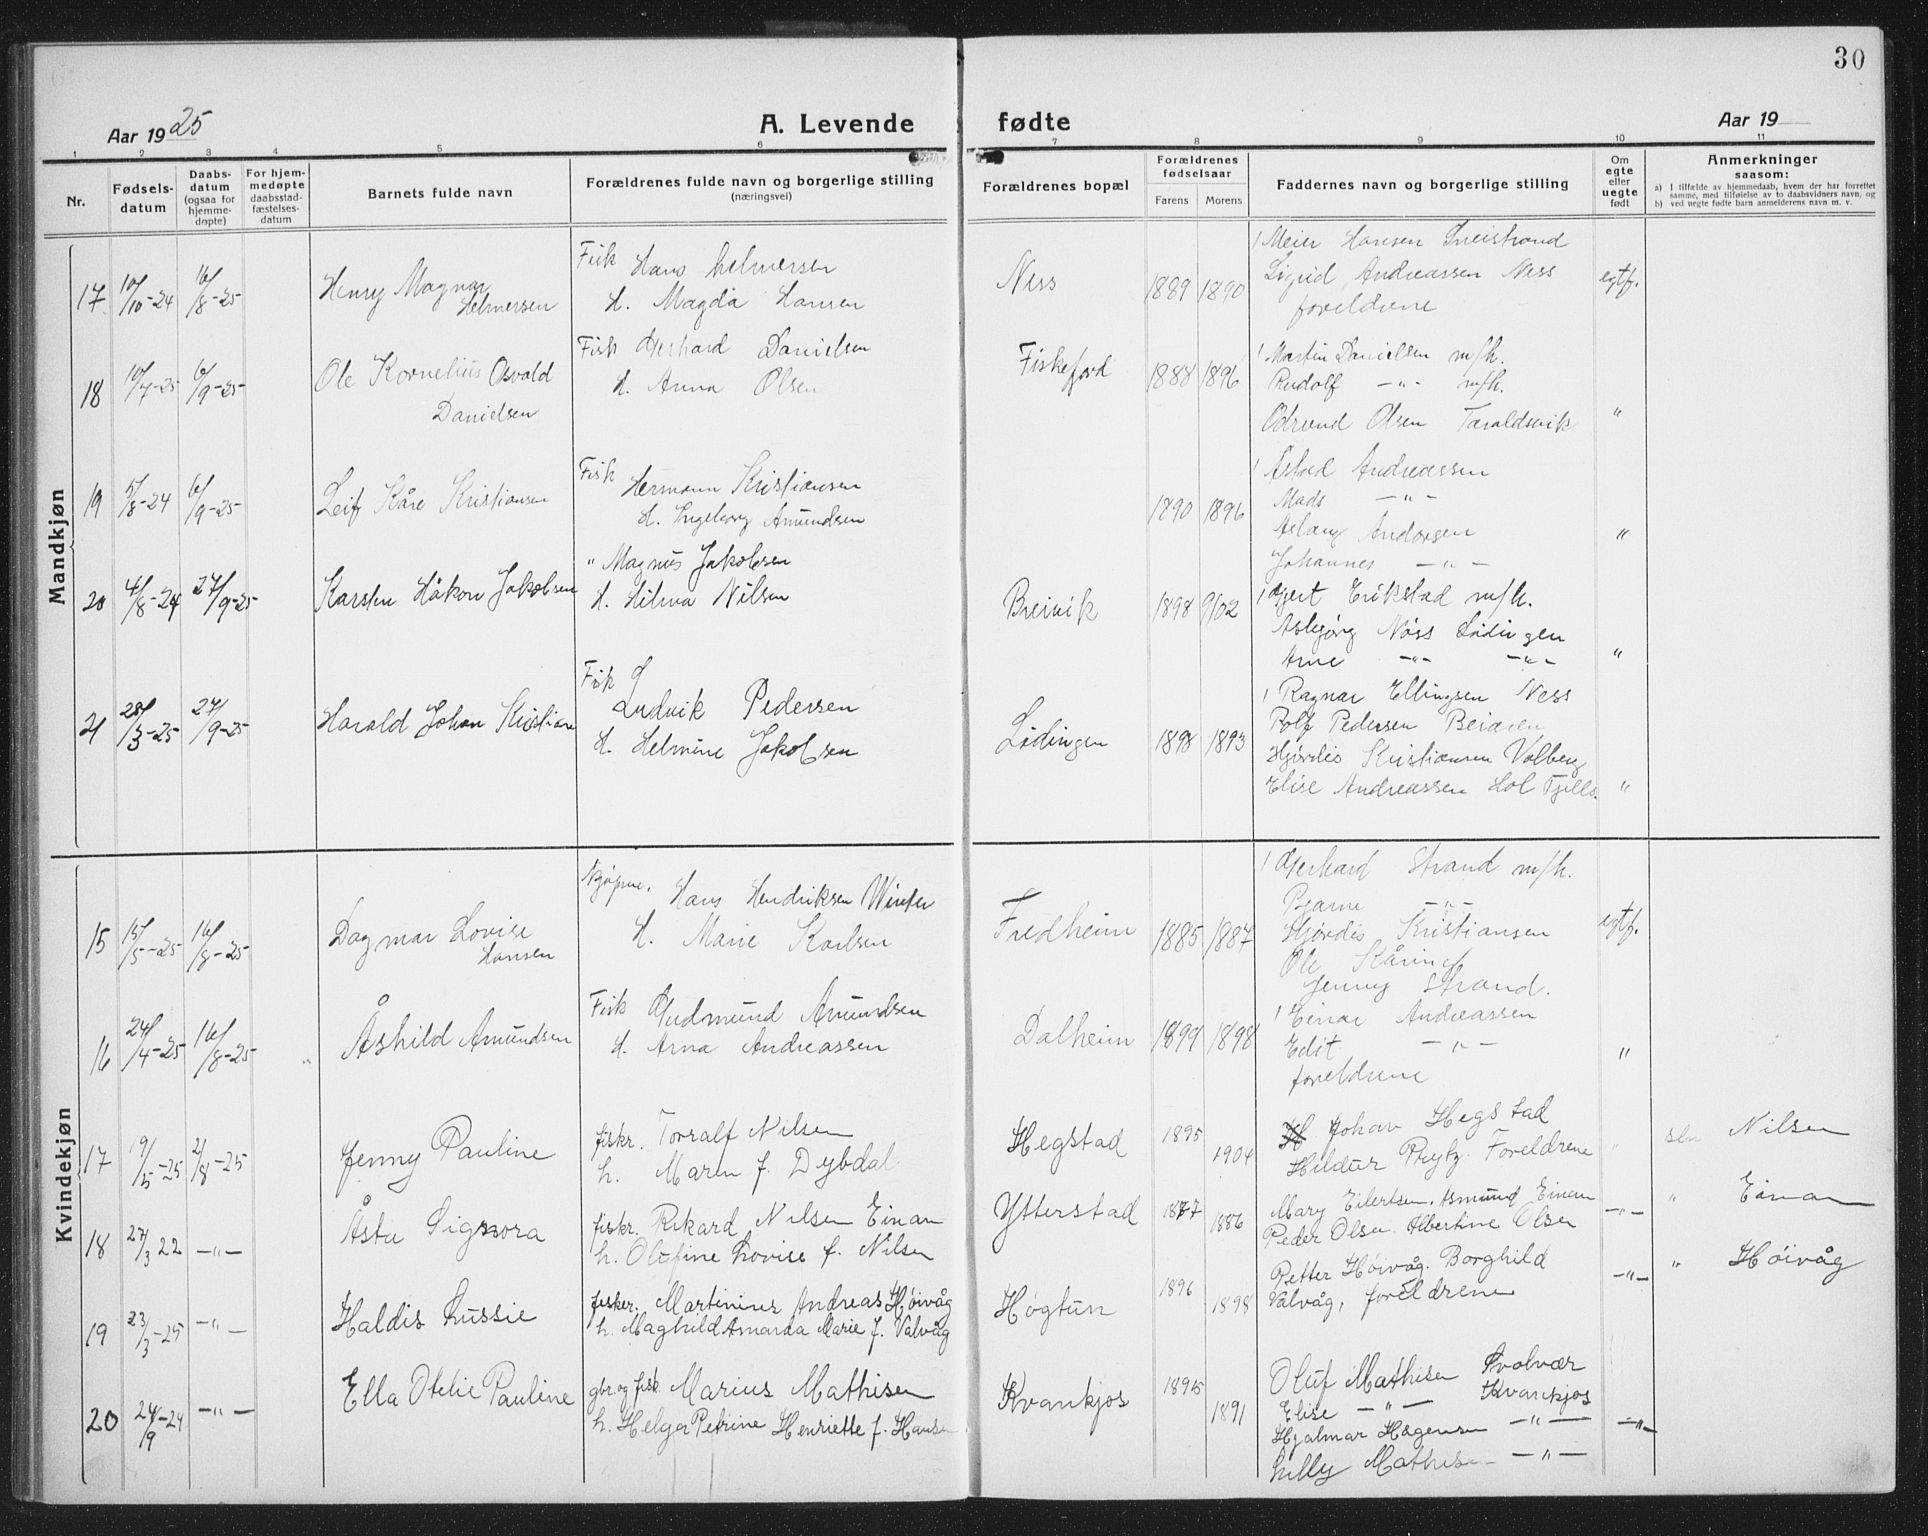 30
Aar 1925 A. Levende fødte Aar 19
1 2 3 4 5 6 7 8 9 10 11
Nr.
Fødsels-
datum
Daabs-
datum
(ogsaa for
hjemme-
døpte)
For hjem-
medøpte
daabsstad-
fæstelses-
datum
Barnets fulde navn
Forældrenes fulde navn og borgerlige stilling
(næringsvei)
Forældrenes bopæl
Forældrenes
fødselsaar
Farens Morens
Faddernes navn og borgerlige stilling
Om
egte
eller
uegte
født
Anmerkninger
saasom:
a) I tilfælde av hjemmedaab, hvem der har forrettet
samme, med tilføielse av to daabsvidners navn, og
b) ved uegte fødte barn anmelderens navn m. v.
Mandkjøn
17 10/10-24 16/8-25 Henry Magnar
Helmersen
Fisk Hans Helmersen
H. Magda Hansen
Ness 1889 1890
Meier Hansen Sneistrand
Sigrid Andreassen Ness
foreldrene
egtf.
18 10/7-25 6/9-25 Ole Kornelius Osvald
Danielsen
Fisk Gerhard Danielsen
H. Anna Olsen
Fiskefjord 1888 1896
Martin Danielsen m/h.
Rudolf -"- m/h.
Olsen Taraldsvik "
19 5/8-24 6/9-25 Leif Kåre Kristiansen
Fisk Hermann Kristiansen
H. Ingeborg Amundsen
1890 1896
Andreassen
Mads -"-
Aslaug Andorsen "
Johannes -"-
20 4/8-24 27/9-25 Karsten Håkon Jakobsen
" Magnus Jakobsen
H. Hilma Nilsen
Breivik 1898 902
Gjert Erikstad m/h.
Asbjørg Ness Lødingen
Arne -"- -"- "
21 28/3-25 27/9-25 Harald Johan Kristian
Fisk Ludvik Pedersen
H. Helmine Jakobsen
Lødingen 1898 1893
Ragnar Ellingsen Ness
Rolf Pedersen
Hjørdis Kristiansen Volberg
Elise Andreassen Hol Tjells. "
Kvindekjøn
15 15/5-25 16/8-25 Dagmar Lovise
Hansen
Hans Hendriksen Winter
H. Marie Karlsen
Fredheim 1885 1887
Gerhard Strand m/h.
Bjarne -"-
Hjørdis Kristiansen
Ole
Jenny Strand.
egtf.
16 24/4-25 16/8-25 " Åshild Amundsen
Fisk Gudmund Amundsen
H. Arna Andreassen
Dalheim 1899 1898
Einar Andreassen
Edit -"-
foreldrene "
17 19/5-25 2/8-25 Jenny Pauline
fiskr. Torralf Nilsen
h. Maren f. Dybdal
Hegstad 1895 1904
Johan Hegstad
Hildur Prytz Foreldrene
" sln Nilsen
18 27/3 22 -"- Åsta Signora
fiskr. Rikard Nilsen Einan
h. Olufine Lovise f. Nilsen
Ytterstad 1877 1886
Mary Eilertsen. Asmund Einan
Peder Olsen. Albertine Olsen
-"- " Einan
19 23/3-25 -"- Haldis Lussie
fisker. Martinius Andreas Høivåg
h. Maghild Amanda Marie f. Valvåg
Høgtun 1896 1898
Petter Høivåg. Borghild
Valvåg, foreldrene
-"- " Høivåg
20 24/9-24 -"- Ella Otelie Pauline
gbr. og fisk. Marius Mathisen
h. Helga Petrine Henriette f. Hansen
Kvankjos 1895 1891
Oluf Mathisen Svolvær
Elise -"- Kvankjos
Hjalmar Hagensen -"- -"-
Lilly Mathisen -"-